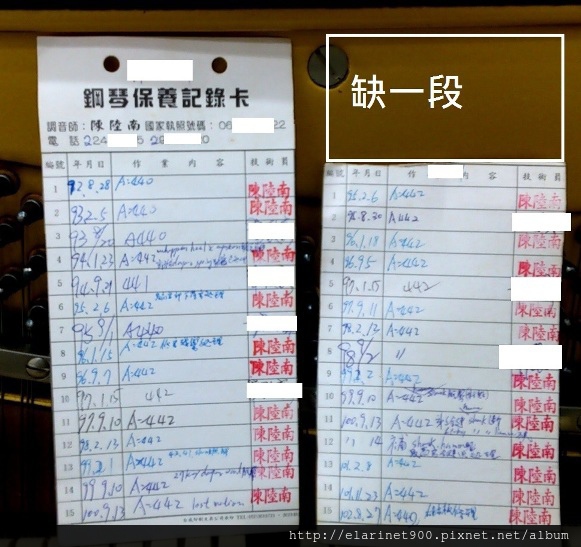 鋼琴保養記錄卡
調音師：陳陸南 國家執照號碼：06 22
電話 224 5 29 0
編號 年月日 作業內容 技術員
1 92.8.28 A=440 陳陸南
2 93.2.5 A=440 陳陸南
3 A440
4 94.1.23 A=442 陳陸南
5 94.9.21 441
6 95.2.6 A=442 陳陸南
7 95 9/1 A=440
8 96.1.15 A=442 陳陸南
9 96.9.7 A=442 陳陸南
10 97.1.15 442
11 97.9.10 A=442 陳陸南
12 98.2.13 A=442 陳陸南
13 99.2.1 A=442 陳陸南
14 99.9.10 A=442 陳陸南
15 100.9.13 A=442 lost motion 陳陸南
缺一段
編號 年月日 作 內容 技術員
1 95.2.6 A=442 陳陸南
2 95.8.30 A442
3 96.1.18 A=442 陳陸南
4 96.9.5 A=442 陳陸南
5 97.1.15 442
6 97.9.11 A=442 陳陸南
7 98.2.13 A=442 陳陸南
8 〃
9 99.2.2 A=442 陳陸南
10 99.9.10 A=442 陳陸南
11 100.9.13 A=442 陳陸南
12 〃 14 陳陸南
13 101.2.8 A=442 陳陸南
14 101.11.23 A=442 陳陸南
15 102.8.27 A=440 陳陸南
http://elarinet900.pixnet.net/album